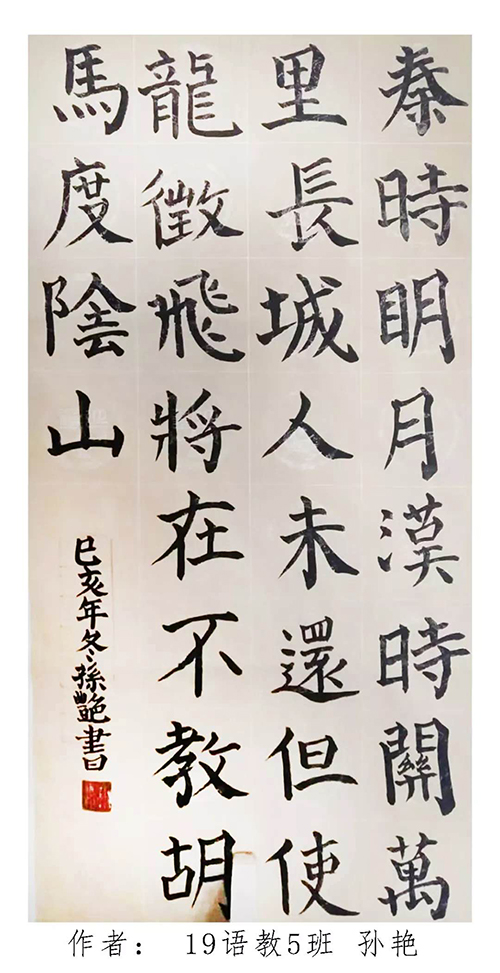 秦時明月漢時關萬
里長城人未還但使
龍徵飛將在不教胡
馬度陰山
己亥年冬孫艷書
作者： 19语教5班 孙艳